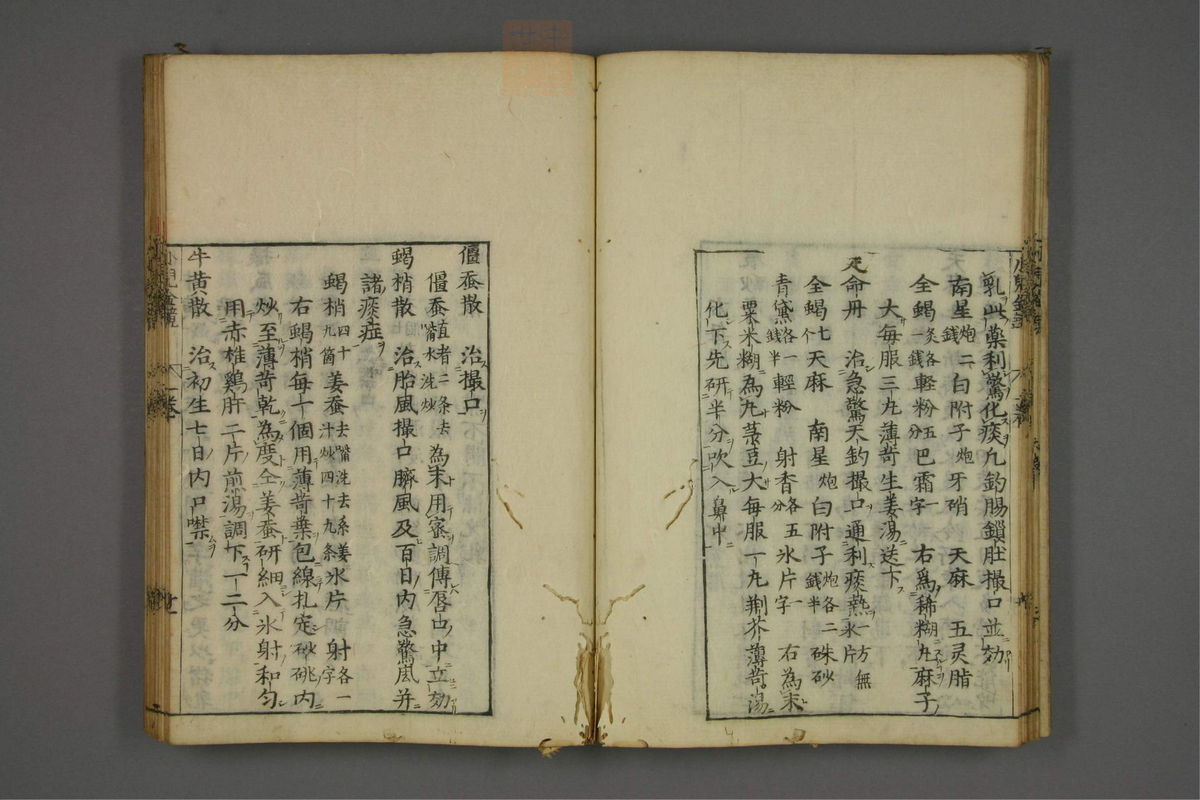 乳此藥利驚化痰凡釣腸鎖肚撮口並効
南星炮二錢白附子炮牙硝天麻五灵脂
全蝎炙各一錢輕粉五分巴霜一字右爲稀糊丸麻子
大每服三丸薄苛生姜湯送下
定命丹治急驚天釣撮口通利痰熱一方無氷片
全蝎七个天麻南星炮白附子炮各二錢半硃砂
青黛各一錢半輕粉射香各五分氷片一字右為末
粟米糊為丸菉豆大每服一丸荆芥薄苛湯
化下先研半分吹入鼻中
僵蚕散治撮口
僵蚕直者二条去嘴水洗炒為末用蜜調傅唇口中立効
蝎梢散治胎風撮口臍風及百日內急驚風并
諸痰症
蝎梢四十九箇姜蚕去嘴洗去系姜汁炒四十九条氷片射各一字
右蝎梢每一個用薄苛葉包線扎定砂銚內
炒至薄苛乾為度仝姜蚕研細入氷射和勻
用赤椎鷄肝二片煎湯調下一二分
牛黄散治初生七日內口噤